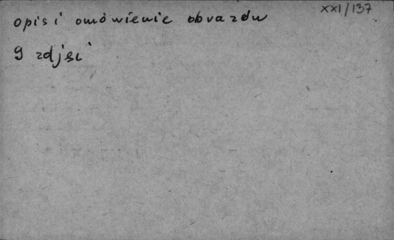 XXI/137
opis i omówienie obrazdu
9 zdjęć